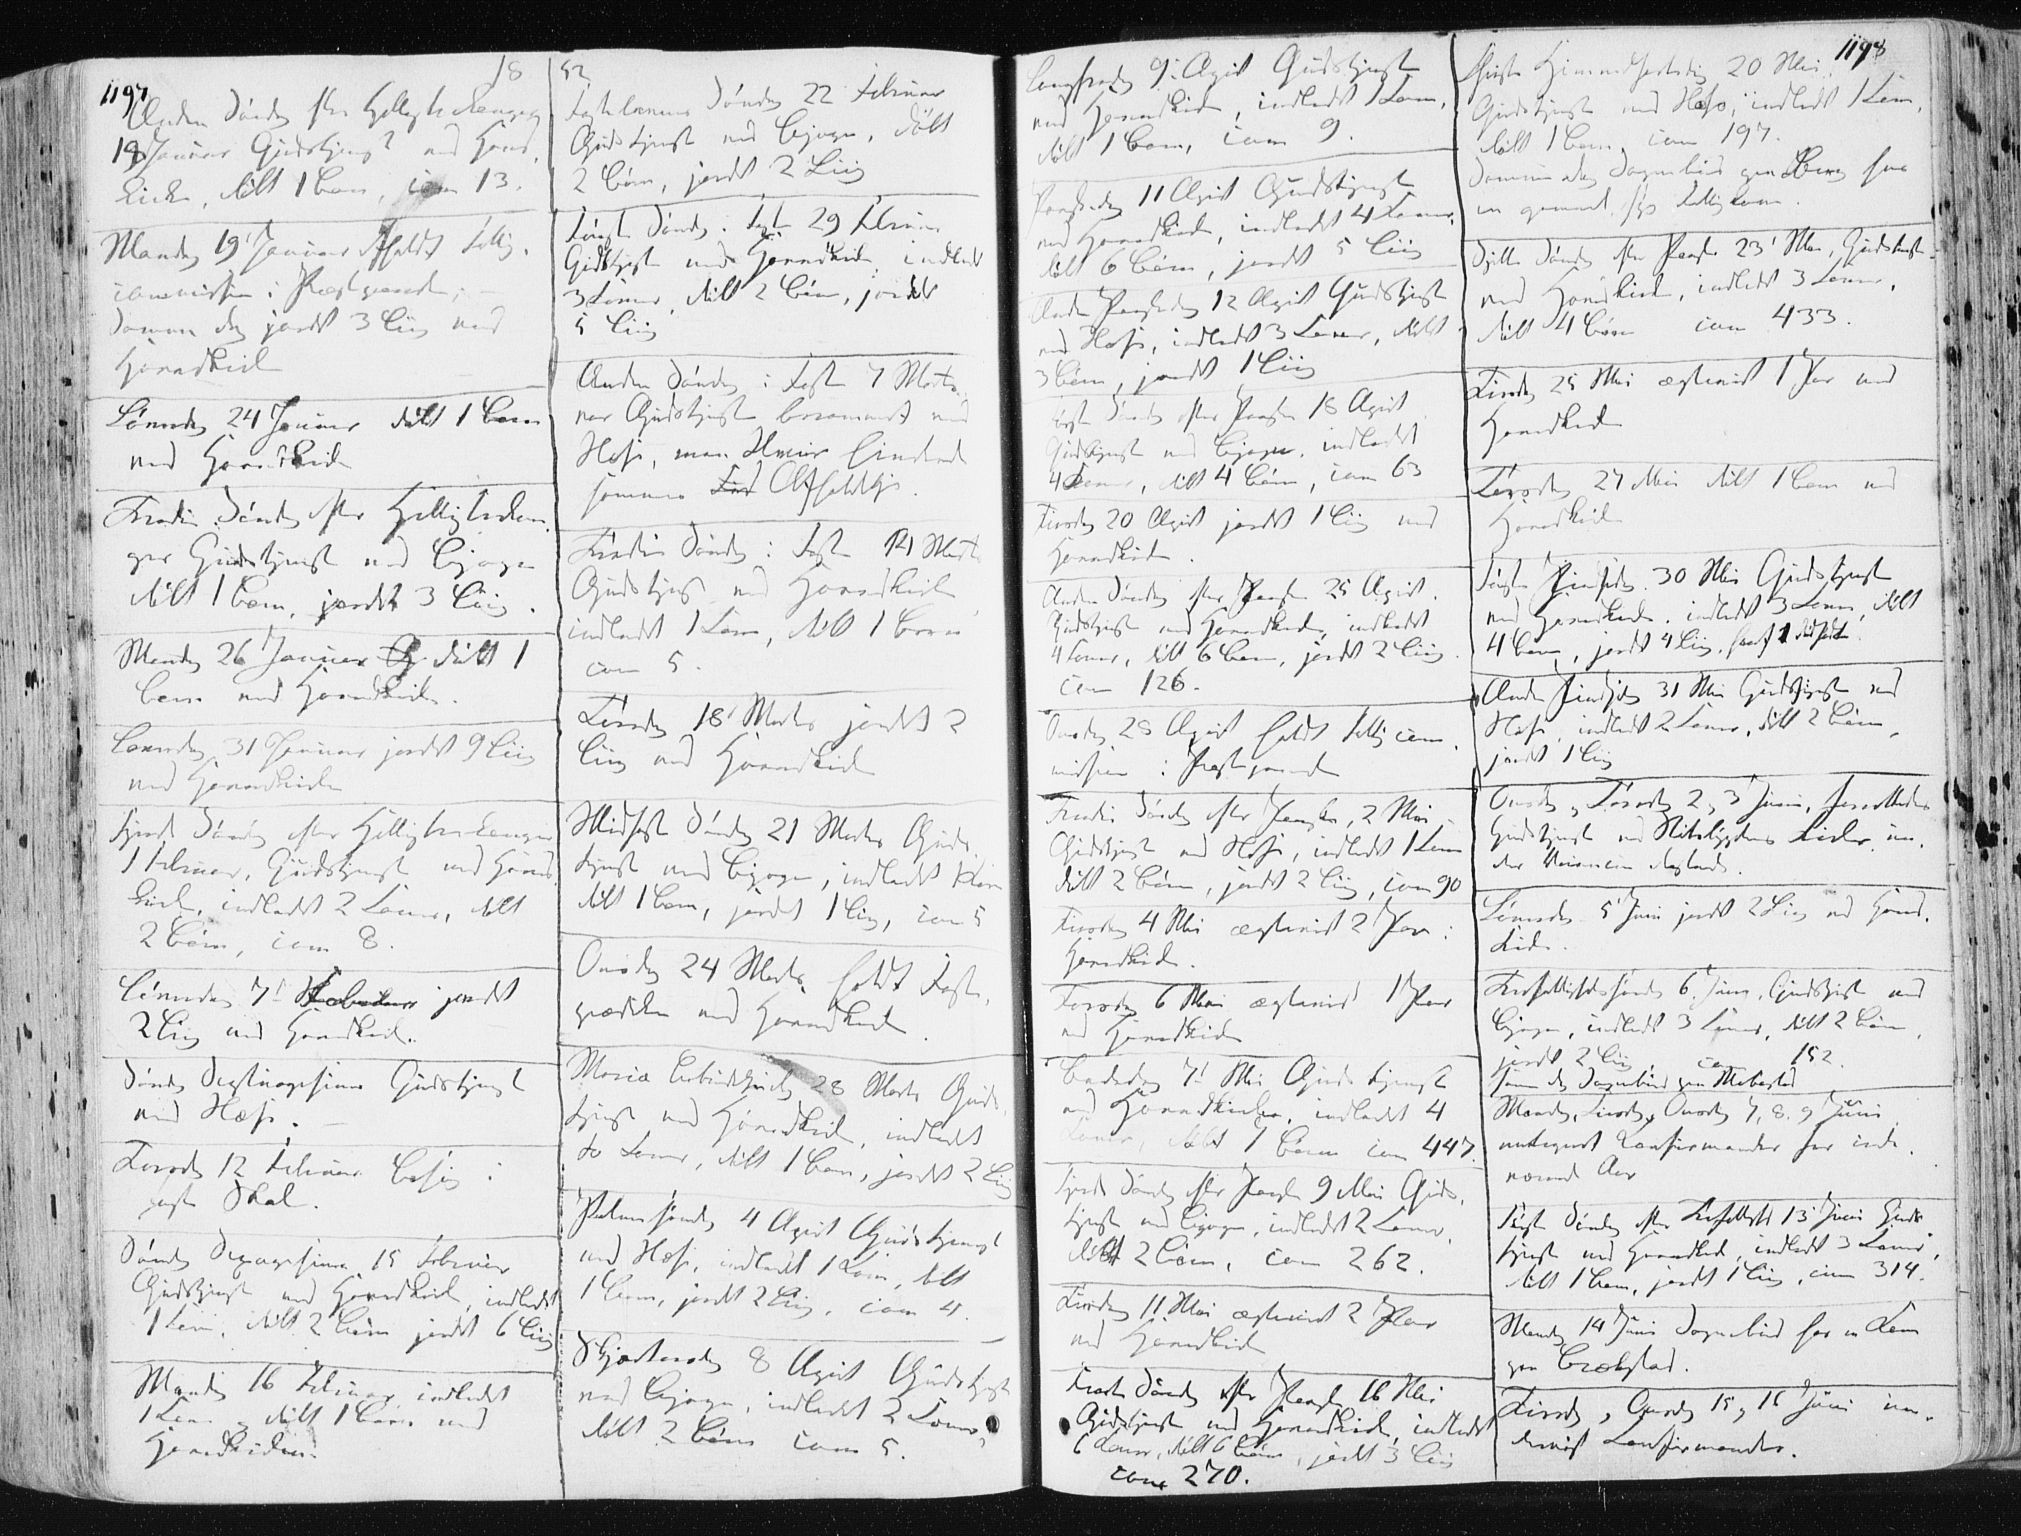 1197
18
Anden Søndag efter Hellig tre Konger
18 Januar Gudstjenst ved Hoved
kirken, døbt 1 Barn, com 13.
Mandag 19' Januar afholdt Fattig
commission i Præstegaarden;
Samme Dag jordet 3 Liig ved
Hovedkirken
Løverdag 24 Januar døbt 1 Barn
ved Hovedkirken
Tredie Søndag efter Hellig tre Kon
ger Gudstjenst ved
døbt 1 Barn, jordet 3 Liig.
Mandag 26' Januar døbt 1
Barn ved Hovedkirken.
Løverdag 31 Januar jordet 9 Liig
ved Hovedkirken
Fjerde Søndag efter Hellig tre Konger
1 Februar, Gudstjenst ved Hoved
kirken, indledet 2 Koner, døbt
2 Børn, com 8.
Løverdag 7' Februar jordet
2 Liig ved Hovedkirken.
Søndag Septuagesima Gudstjenst
ved
Torsdag 12 Februar
Skole.
Søndag Sexagesima 15 Februar
Gudstjenst ved Hovedkirken, indledet
1 Kone, døbt 2 Børn jordet 6 Liig
Mandag 16 Februar indledet
1 Kone og døbt 1 Barn ved
Hovedkirken.
52
Fastelavns Søndag 22 Februar
Gudstjenst ved døbt
2 Børn, jordet 2 Liig
Første Søndag i Faste 29 Februar
Gudstjenst ved Hovedkirken, indledet
3 Koner, døbt 2 Børn, jordet
5 Liig
Anden Søndag i Faste 7 Marts
var Gudstjenst berammet ved
men
Tredie Søndag i Faste 14 Marts
Gudstjenst ved Hovedkirken
indledet 1 Kone, døbt 1 Barn
com 5.
Torsdag 18' Marts jordet 2
Liig ved Hovedkirken
Midfaste Søndag 21 Marts Guds
tjenst ved indledet 1 Kone
døbt 1 Barn, jordet 1 Liig, com 5
Onsdag 24 Marts holdt Faste
prædiken ved Hovedkirken
Mariæ Bebudelsesdag 28 Marts Guds
tjenst ved Hovedkirken, indledet
to Koner, døbt 1 Barn, jordet 2 Liig
Palmesøndag 4 April Gudstjenst
ved indledet 1 Kone, døbt
1 Barn, jordet 2 Liig, com 4
Skjertorsdag 8 April Gudstjenst
ved indledet 2 Koner,
døbt 2 Børn com 5.
Langfredag 9' April Gudstjenst
ved Hovedkirken, indledet 1 Kone,
døbt 1 Barn, com 9.
Paaskedag 11 April Gudstjenst
ved Hovedkirken, indledet 4 Koner,
døbt 6 Børn, jordet 5 Liig
Anden Paaskedag 12 April Gudstjenst
ved indledet 3 Koner, døbt
3 Børn, jordet 1 Liig
Første Søndag efter Paaske 18 April
Gudstjenst ved indledet
4 Koner, døbt 4 Børn, com 63
Tirsdag 20 April jordet 1 Liig ved
Hovedkirken.
Anden Søndag efter Paaske 25 April.
Gudstjenst ved Hovedkirken, indledet
4 Koner, døbt 6 Børn, jordet 2 Liig.
com 126.
Onsdag 28 April holdt Fattigcom
mission i Præstegaarden
Tredie Søndag efter Paaske, 2 Mai
Gudstjenst ved indledet 1 Kone
døbt 2 Børn, jordet 2 Liig, com 90
Tirsdag 4 Mai ægteviet 2 Par i
Hovedkirken.
Torsdag 6 Mai ægteviet 1 Par
ved Hovedkirken
Bededag 7' Mai Gudstjenst
ved Hovedkirken, indledet 4
Koner, døbt 1 Barn com 447.
Fjerde Søndag efter Paaske 9 Mai Guds
tjenst ved indledet 2 Koner,
døbt 2 Børn, com 262.
Tirsdag 11 Mai ægteviet 2 Par
ved Hovedkirken
Femte Søndag efter Paaske 16 Mai
Gudstjenst ved Hovedkirken, indledet
6 Koner, døbt 6 Børn, jordet 3 Liig
com 270.
1198
Christi Himmelfartsdag 20 Mai
Gudstjenst ved indledet 1 Kone,
døbt 1 Barn, com 197.
Samme Dag Sognebud paa Berg for
en gammel syg
Sjette Søndag efter Paaske 23' Mai, Gudstjenst
ved Hovedkirken, indledet 3 Koner,
døbt 4 Børn com 433.
Tirsdag 25 Mai ægteviet 1 Par ved
Hovedkirken
Torsdag 27 Mai døbt 1 Barn ved
Hovedkirken
Første Pintsedag 30 Mai Gudstjenst
ved Hovedkirken, indledet 3 Koner, døbt
4 Børn, jordet 4 Liig, heraf 1 dødfødt.
Anden Pintsedag 31 Mai Gudstjenst ved
indledet 2 Koner, døbt 2 Børn,
jordet 1 Liig
Onsdag og Torsdag 2 og 3' Juni, forrettedes
Gudstjenst ved Kirke, un
der
Løverdag 5' Juni jordet 2 Liig ved Hoved
kirken.
Trefoldighedssøndag 6' Juni, Gudstjenst ved
indledet 3 Koner, døbt 2 Børn,
jordet 2 Liig, com 152.
samme Dag Sognebud paa
Mandag, Tirsdag, Onsdag 7, 8, 9 Juni
modtaget Confirmander for inde
værende Aar
Første Søndag efter Trefoldighed 13' Juni Guds
tjenst ved Hovedkirken, indledet 3 Koner,
døbt 1 Barn, jordet 1 Liig, com 314.
Mandag 14 Juni Sognebud for en Kone
paa
Tirsdag og Onsdag 15 og 16 Juni un
derviist Confirmander.